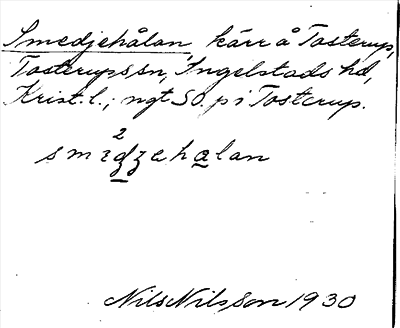 Smedjehålan, kärr å Tosterup,
Tosterups sn, Ingelstads hd,
Krist. l.; ngt SO. p i Tosterup.
2
smɛdʒehalan
Nils Nilsson 1930